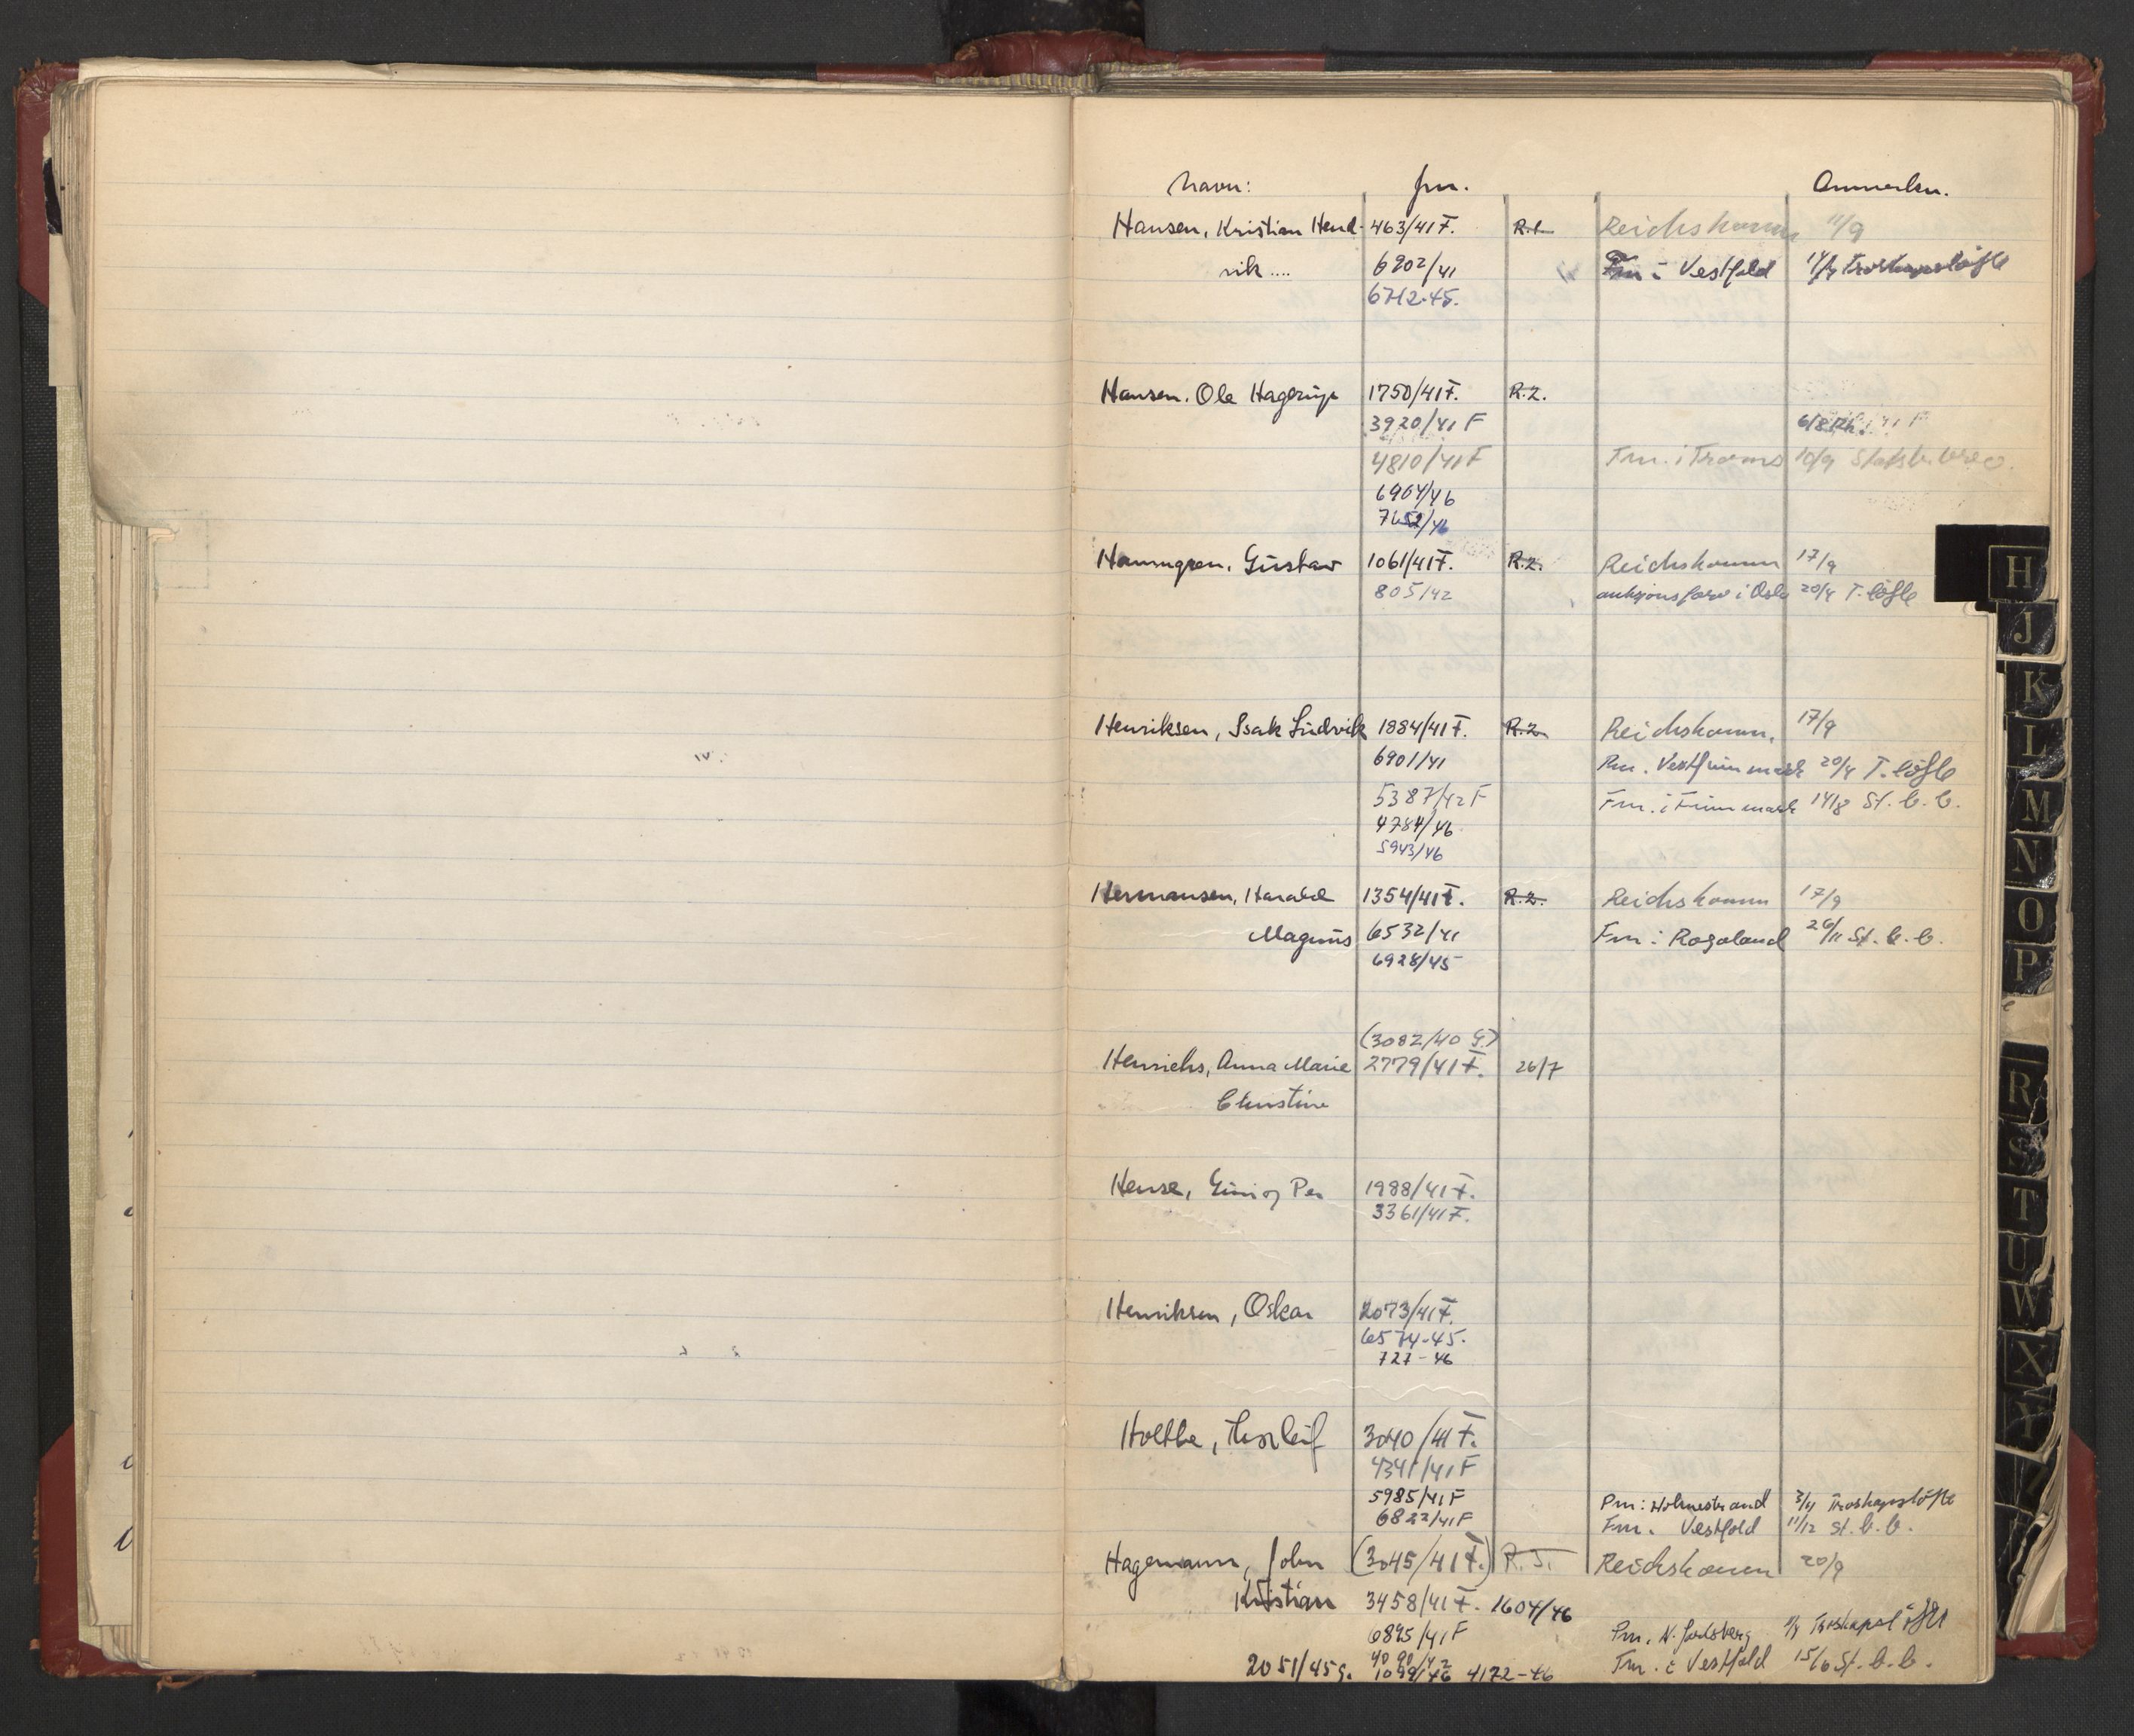 Navn: Jnr. Anmerkn.
Hansen, Kristian Hend- 463/41 F. R.1 Reichskomm 11/9
rik .... 6902/41 Fm i Vestfold Troskapsløfte
6712-45.
Hansen. Ole Hagerup 1750/41 F. R.2.
3920/41 F 6/8 Rk.
4810/41 F Fm. i Troms 10/9 Statsb. brev.
6964/46
7652/46
Hammgren, Gustav 1061/41 F. R.2. Reichskomm 17/9
805/42 auksjonsforv i Oslo 20/4 T. løfte
Henriksen, Isak Ludvik 1884/41 F. R.2. Reichskomm. 17/9
6901/41 Pm. Vestfinnmark 20/4 T. løfte
5387/42 F Fm. i Finnmark 14/8 St. b. b.
4784/46
5943/46
Hermansen, Harald 1354/41 F. R.2. Reichskomm 17/9
Magnus 6532/41 Fm i Rogaland 26/11 St. b. b.
6928/45
(3082/40 G.)
Henrichs, Anna Marie 2779/41 F. 26/7
Christine
Hense, Guri og Per 1988/41 F.
3361/41 F.
Henriksen, Oskar 2073/41 F.
6574-45.
727-46
Holthe, Thorleif 3040/41 F.
4341/41 F
5985/41 F Pm i Holmestrand Troskapsløfte
6822/41 F Fm. Vestfold 11/12 St. b. b.
Hagemann, John (3045/41 F.) R.5. Reichskomm 20/9
Kristian 3458/41 F. 1604/46
6895/41 F Pm. N. Jarlsberg Troskapsløfte
4090/42 Fm. i Vestfold 15/6 St. b. b.
2051/45 G. 1099/46 4172-46
H
J
K
L
M
N
O
P
R
S
T
U
W
X
Y
Z